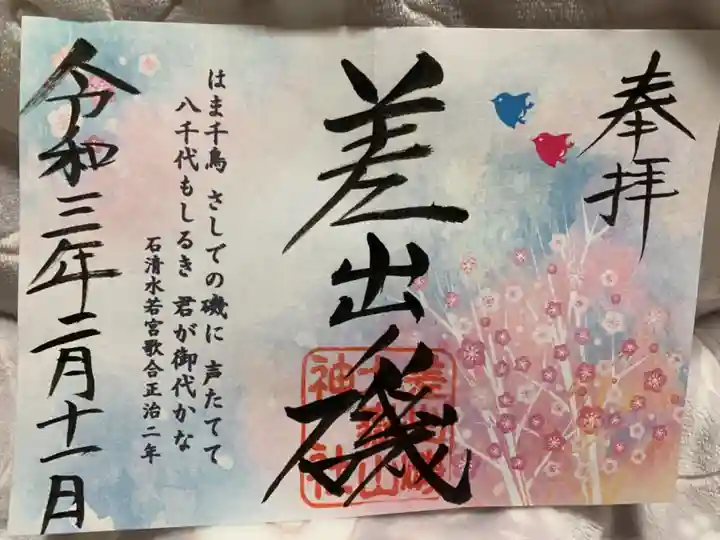 奉拝
差出磯
はま千鳥 さしでの磯に 声たてて
八千代もしるき 君が御代かな
石清水若宮歌合正治二年
令和三年二月十一日